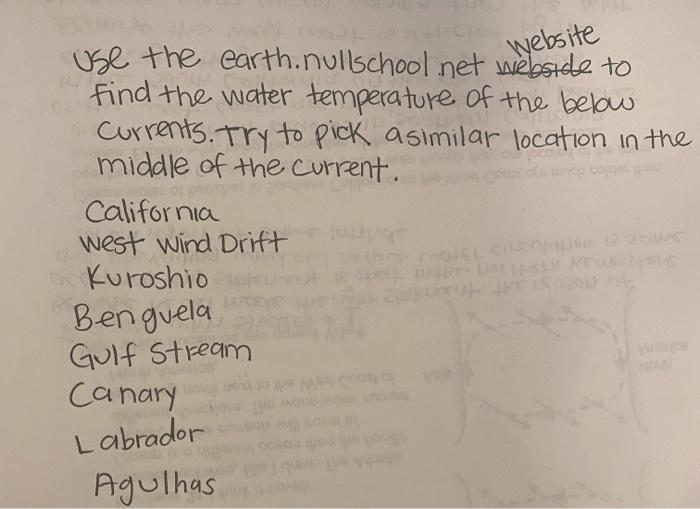 website
use the earth.nullschool.net webside to
find the water temperature of the below
currents. Try to pick a similar location in the
middle of the current.
California
West Wind Drift
Kuroshio
Benguela
Gulf Stream
Canary
Labrador
Agulhas